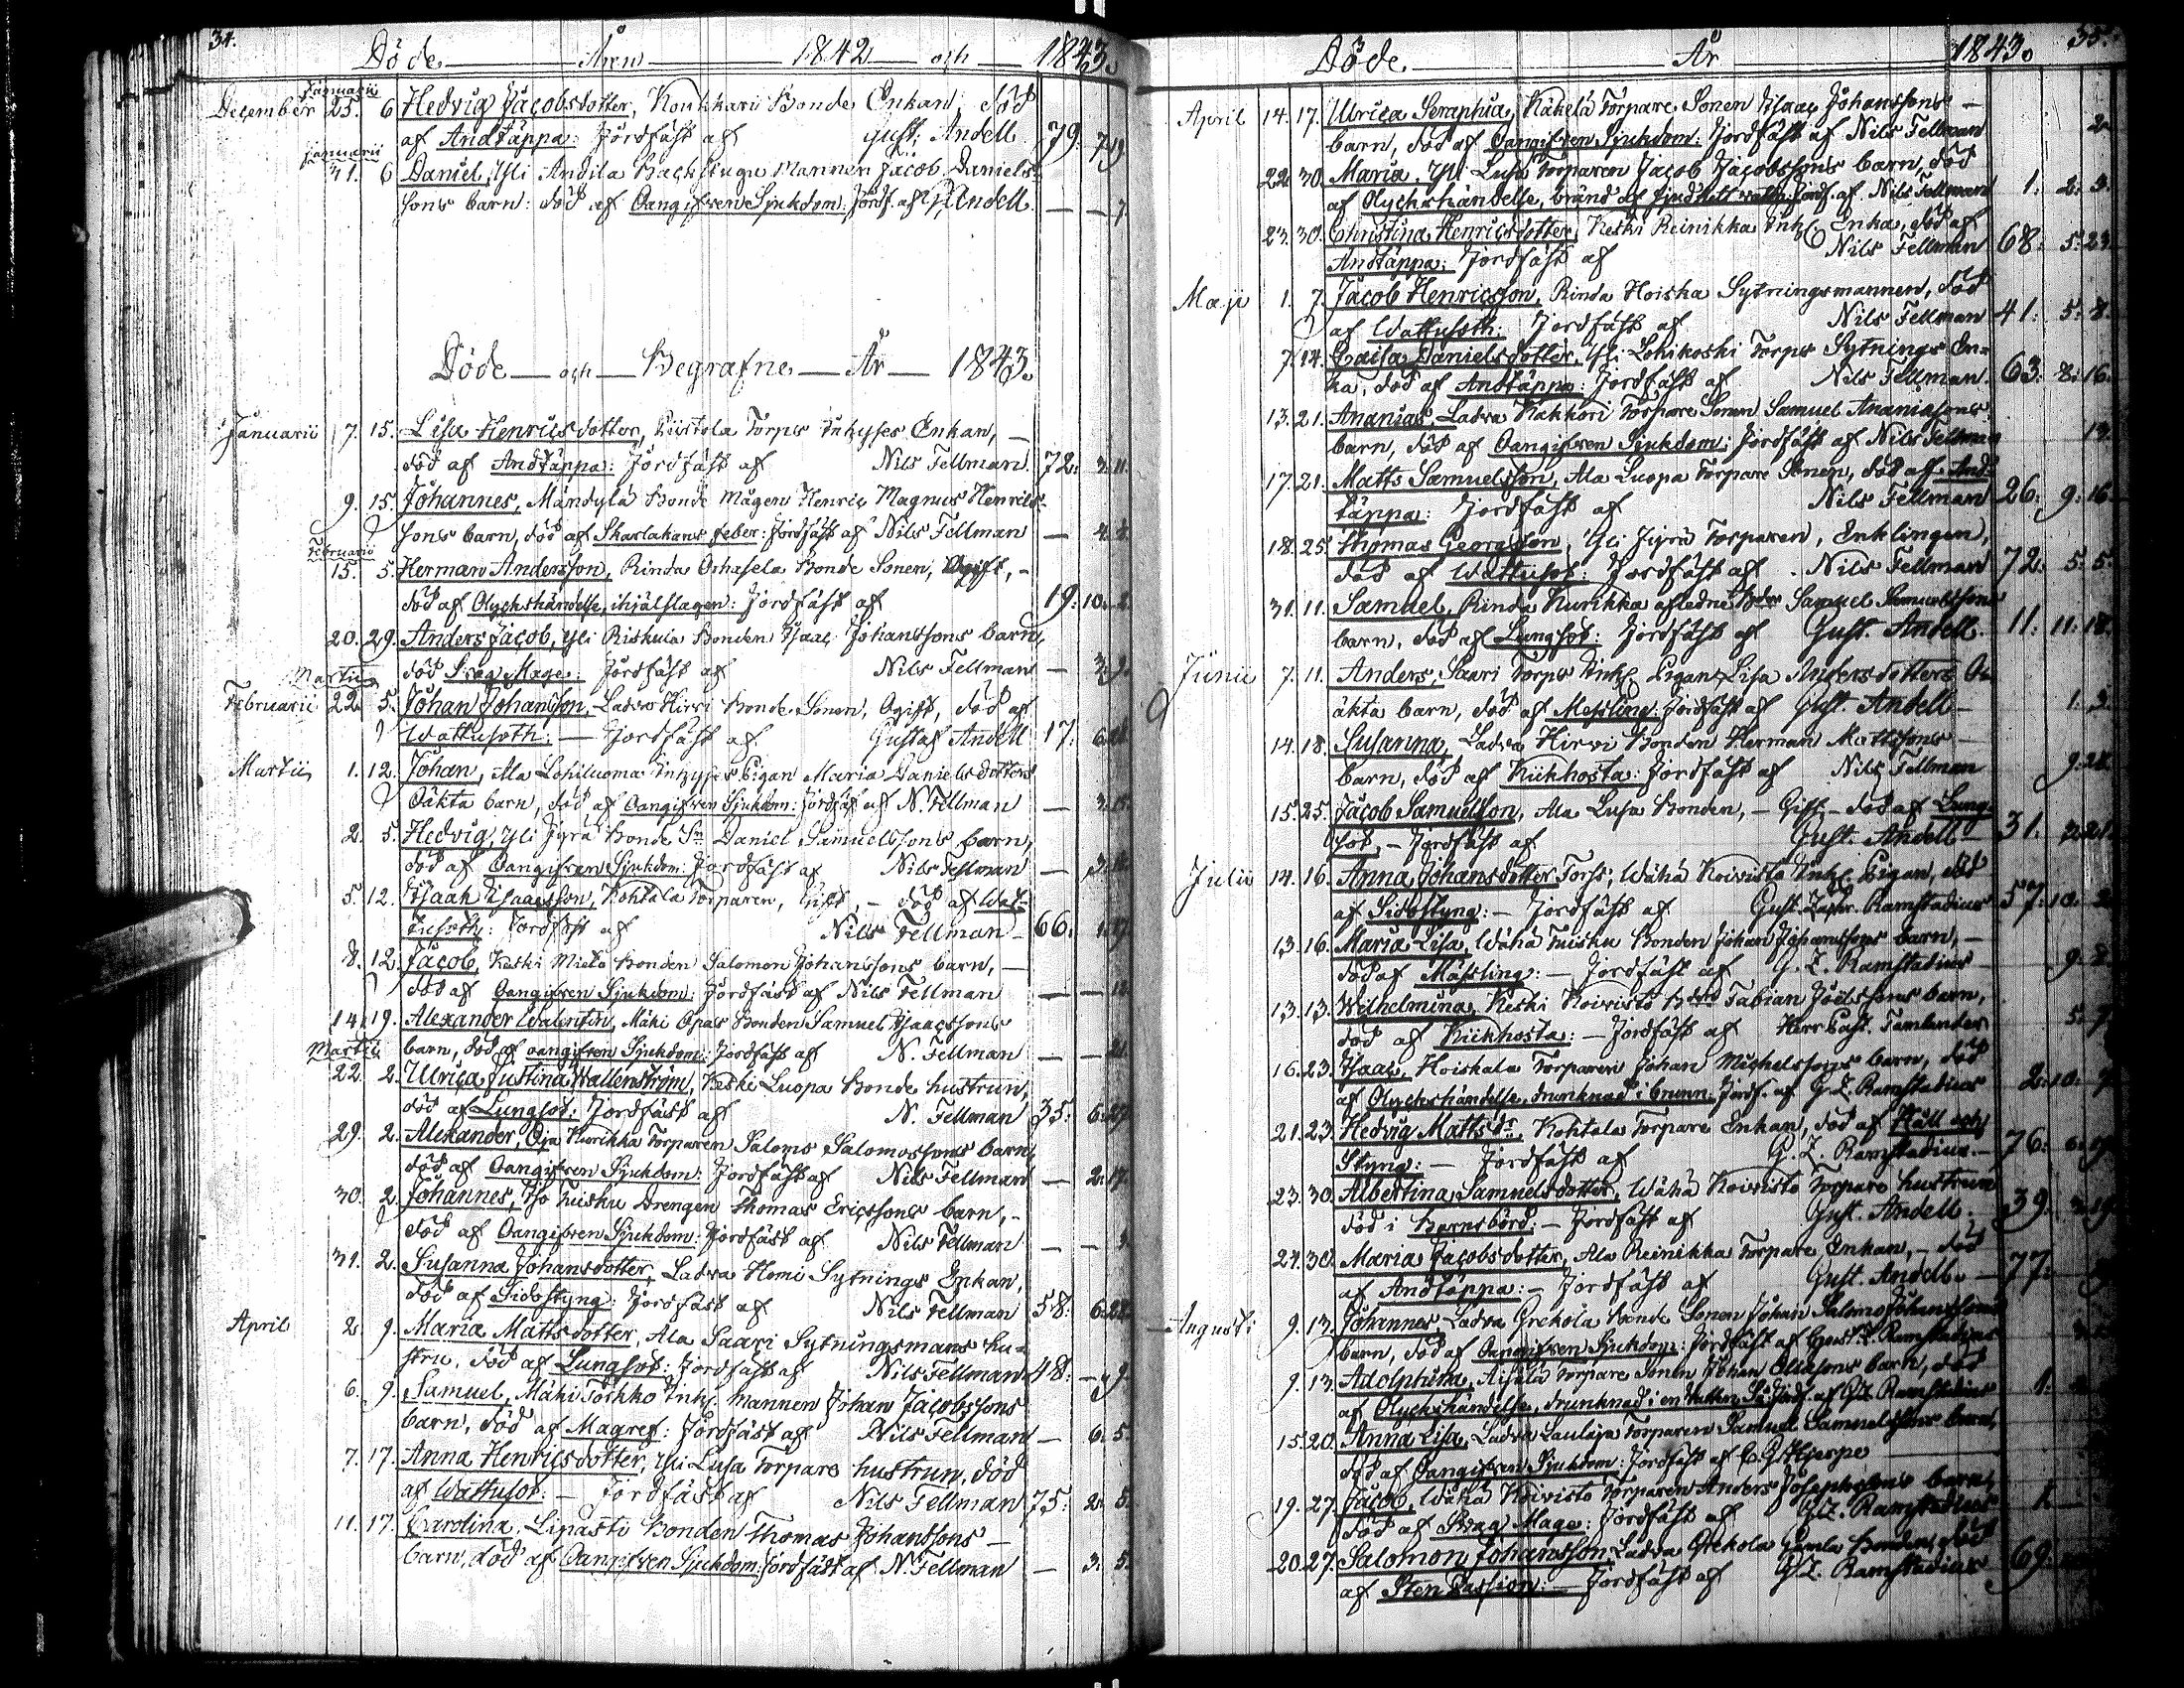 34.
Döde Åren 1842 och 1843.
Januarii
December 25. 6 Hedvig Jacobsdotter, Koukkari Bonde Enkan, död
af Andtäppa: Jordfäst af Gust. Andell 79. 7. 19
Januarii
31. 6 Daniel, Yli Andila Backstugu Mannen Jacob Daniels-
sons barn: död af Oangifven Sjukdom: Jordf. af G. Andell — — 7.
Döde och Begrafne År 1843.
Januarii 7. 15. Lisa Henricsdotter, Torps Inhyses Enkan, —
död af Andtäppa: Jordfäst af Nils Fellman 72: 3. 11.
9. 15. Johannes, Mändylä Bonde Mågen Henric Magnus Henrics-
sons barn, död af Skarlakans feber: Jordfäst af Nils Fellman — 4. 8.
Februarii
15. 5. Herman Andersson, Rinda Orhasela Bonde Sonen, Ogift, -
död af Olyckshändelse, ihjälslagen: Jordfäst af 19: 10. 2.
20. 29. Anders Jacob, Yli Riskula Bonden Isaac Johanssons barn,
död Svag Mage: Jordfäst af Nils Fellman — 3. 9.
Martii
Februarii 22. 5. Johan Johansson, Ladva Hirvi Bonde Sonen, Ogift, död af
Wattusoth: — Jordfäst af Gustaf Andell 17:
Martii 1. 12. Johan, Ala Lohiluoma Inhyses Pigan Maria Danielsdotters
Oäkta barn, död af Oangifven Sjukdom: Jordfäst af N. Fellman — 3. 15.
2. 5. Hedvig, Yli Jyrä Bonde Sn Daniel Samuelssons barn,
död af Oangifven Sjukdom: Jordfäst af Nils Fellman —
5. 12. Isaak Isaacsson, Kohtala Torparen, Gift, - död af Wat-
tusoth: Jordfäst af Nils Fellman 66: 1. 17.
8. 12. Jacob, Keski Mieto Bonden Salomon Johanssons barn, —
död af Oangifven Sjukdom: Jordfäst af Nils Fellman — — 12
14. 19. Alexander Walentin, Mäki Opas Bonden Samuel Isaacssons
barn, död af oangifven Sjukdom: Jordfäst af N. Fellman — — 21
Martii
22. 2. Ulrica Justina Wallenström, Keski Luopa Bonde hustrun,
död af Lungsot: Jordfäst af N. Fellman 35: 6. 27
29. 2. Alexander, Oja Kurikka Torparen Saloms Salomossons barn,
död af Oangifven Sjukdom: Jordfäst af Nils Fellman — 2. 17.
30. 2. Johannes, Iso Tuisku Drengen Thomas Ericssons barn, -
död af Oangifven Sjukdom: Jordfäst af Nils Fellman — —
31. 2. Susanna Johansdotter, Ladva Homi Sytnings Enkan,
död af Sidostyng: Jordfäst af Nils Fellman 58: 6. 28
April 2. 9. Maria Mattsdotter, Ala Saari Sytningsmans hu-
stru, död af Lungsot: Jordfäst af Nils Fellman 48: — 9.
6. 9. Samuel, Mäki Töshko Inhs. mannen Johan Jacobssons
barn, död af Magref: Jordfäst af Nils Fellman — 6. 5.
7. 17. Anna Henricsdotter, Yli Lusa Torpare hustrun, död
af Wattusot: — Jordfäst af Nils Fellman 75: 2. 5.
11. 17. Carolina, Lipasti Bonden Thomas Johanssons —
barn, död af Oangifven Sjukdom: Jordfäst af N. Fellman — 3. 5.
35.
Döde År 1843.
April 14. 17. Ulrica Seraphia, Käkelä Torpare Sonen Isaac Johanssons —
barn, död af Oangifven Sjukdom: Jordfäst af Nils Fellman 2.
22. 30. Maria, Yli Lusa Torparen Jacob Jacobssons barn, död
af Olyckshändelse, bränd af sjudhett vatten: Jordf. af Nils Fellman 1. 2. 3.
23. 30. Christina Henricsdotter, Keski Reinikka Inhs. Enka, död af
Andtäppa: Jordfäst af Nils Fellman 68: 5. 23.
Maji 1. 7. Jacob Henricsson, Rinda Hoiska Sytningsmannen, död
af Wattusoth: Jordfäst af Nils Fellman 41: 5. 8.
7. 14. Caisa Danielsdotter, Yli Lohikoski Torps Sytnings En-
ka, död af Andtäppa: Jordfäst af Nils Fellman. 63: 8. 16.
13. 21. Ananias, Ladva Kakkori Torpare Sonen Samuel Ananiasons
barn, död af Oangifven Sjukdom: Jordfäst af Nils Fellman 13.
17. 21. Matts Samuelsson, Ala Luopa Torpare Sonen, död af And-
täppa: Jordfäst af Nils Fellman 26: 9. 16
18. 25. Thomas Georgsson, Yli Jyrä Torparen, Enklingen,
död af Wattusot: Jordfäst af Nils Fellman 72. 5. 5.
31. 11. Samuel, Rinda Kurikka afledne Samuel Samuelssons
barn, död af Lungsot: Jordfäst af Gust. Andell. 11: 11: 18.
Junii 7. 11. Anders, Saari Torps Inhs Pigan Lisa Andersdotters O-
äkta barn, död af Messling: Jordfäst af Gust. Andell — 1. 3.
14. 18. Susanna, Ladva Hirvi Bonden Herman Mattssons —
barn, död af Kikhosta: Jordfäst af Nils Fellman 9. 28.
15. 25. Jacob Samuelsson, Ala Lusa Bonden, — Gift, — död af Lung-
sot, — Jordfäst af Gust. Andell 31. 2. 21.
Julii 14. 16. Anna Johansdotter Torss, Wähä Koivisto Inhs. Pigan, död
af Sidostyng: — Jordfäst af Gust. Ramstadius 57: 10.
13. 16. Maria Lisa, Wähä Tuisku Bonden Johan Johanssons barn, —
död af Mässling: — Jordfäst af G. Z. Ramstadius — 9. 8
13. 13. Wilhelmina, Keski Koivisto Fabian Joelssons barn,
död af Kikhosta: — Jordfäst af Herr Past. Tamlander 5.
16. 23. Isaac, Hoiskala Torparen Johan Michelssons barn, död
af Olyckshändelse, drunknad i brunn. Jordf. af G. Z. Ramstadius 2. 10.
21. 23. Hedvig Mattsdr, Kohtala Torpare Enkan, död af Håll och
Styng: — Jordfäst af G. Z. Ramstadius. — 76:
23. 30. Albertina Samuelsdotter, Wähä Koivisto Torpare hustrun
död i Barnsbörd: — Jordfäst af Gust. Andell. 39.
24. 30. Maria Jacobsdotter, Ala Reinikka Torpare Enkan, — död
af Andtäppa: — Jordfäst af Gust. Andell. — 77:
Augusti 9. 13. Johannes, Ladva Grekola Bonde Sonen Johan Salomo Johanssons
barn, död af Oangifven Sjukdom: Jordfäst af Gust. Z. Ramstadius
9. 13. Adolphina, Torpare Sonen Johan barn, död
af Olyckshändelse, drunknad i en af G. Z. Ramstadius 1.
15. 20. Anna Lisa, Ladva Laulaja Torparen Samuel Samuelssons barn,
död af Oangifven Sjukdom: Jordfäst af
19. 27. Jacob, Wähä Koivisto Torparen Anders Josephssons barn,
död af Svag Mage: Jordfäst af G. Z. Ramstadius
20. 27. Salomon Johansson, Ladva Grekola Gamla Bonden, död
af Sten Passion: — Jordfäst af G. Z. Ramstadius 69: